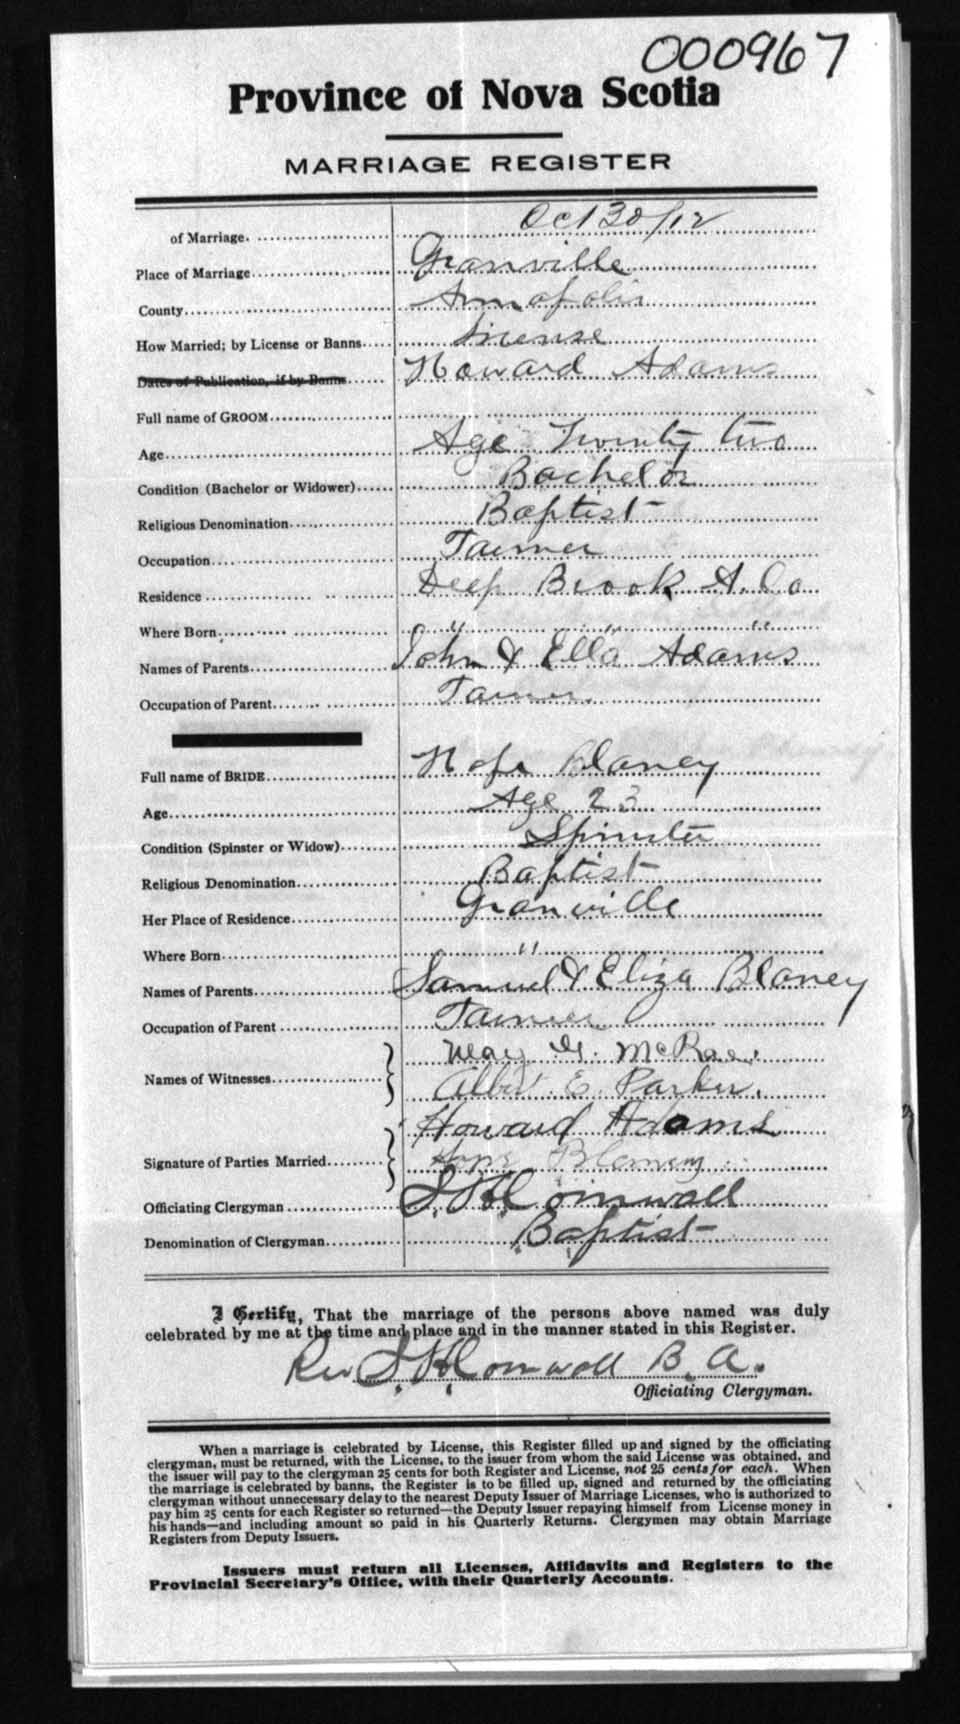 000967
Province of Nova Scotia
MARRIAGE REGISTER
of Marriage. Oct 30/12
Place of Marriage Granville
County Annapolis
How Married; by License or Banns License
Dates of Publication, if by Banns Howard Adams
Full name of GROOM
Age Age Twenty two
Condition (Bachelor or Widower) Bachelor
Religious Denomination Baptist
Occupation Farmer
Residence Deep Brook A. Co
Where Born " " "
Names of Parents John & Ella Adams
Occupation of Parent Farmer
Full name of BRIDE Hope Blaney
Age Age 23
Condition (Spinster or Widow) Spinster
Religious Denomination Baptist
Her Place of Residence Granville
Where Born "
Names of Parents Samuel & Eliza Blaney
Occupation of Parent Farmer
Names of Witnesses May McRae
Albert E. Parker.
Signature of Parties Married Howard Adams
Hope Blaney
Officiating Clergyman Cornwall
Denomination of Clergyman Baptist
I Certify, That the marriage of the persons above named was duly
celebrated by me at the time and place and in the manner stated in this Register.
Rev Cornwall B. A.
Officiating Clergyman.
When a marriage is celebrated by License, this Register filled up and signed by the officiating
clergyman, must be returned, with the License, to the issuer from whom the said License was obtained, and
the issuer will pay to the clergyman 25 cents for both Register and License, not 25 cents for each. When
the marriage is celebrated by banns, the Register is to be filled up, signed and returned by the officiating
clergyman without unnecessary delay to the nearest Deputy Issuer of Marriage Licenses, who is authorized to
pay him 25 cents for each Register so returned—the Deputy Issuer repaying himself from License money in
his hands—and including amount so paid in his Quarterly Returns. Clergymen may obtain Marriage
Registers from Deputy Issuers.
Issuers must return all Licenses, Affidavits and Registers to the
Provincial Secretary's Office, with their Quarterly Accounts.